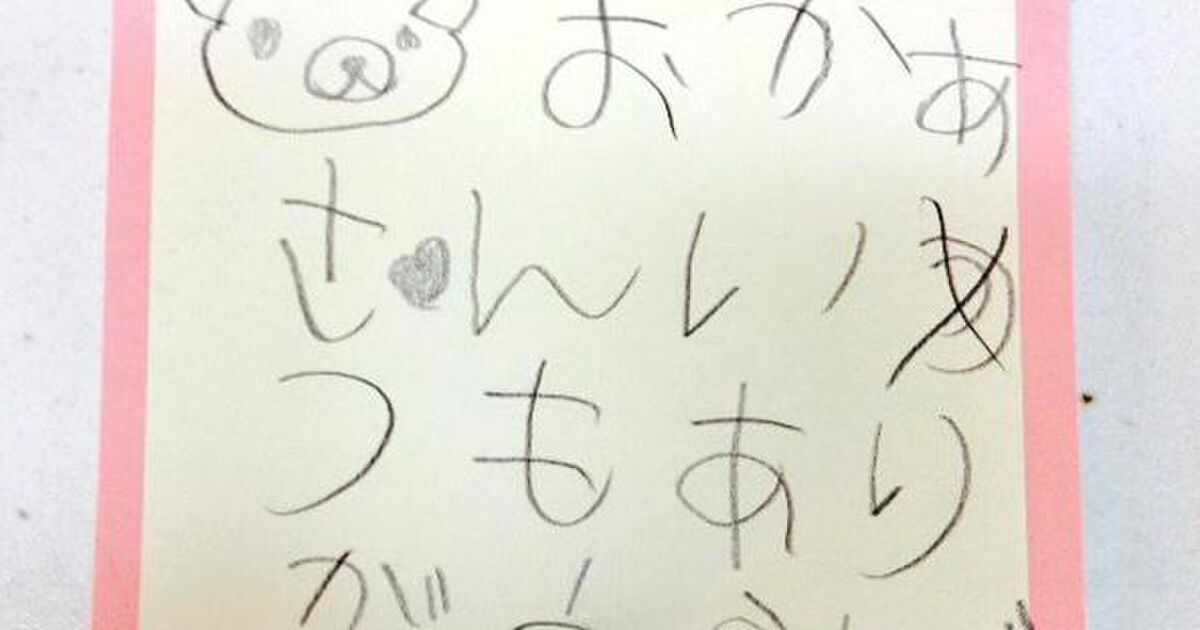 おかあ
さんい
つもあり
が